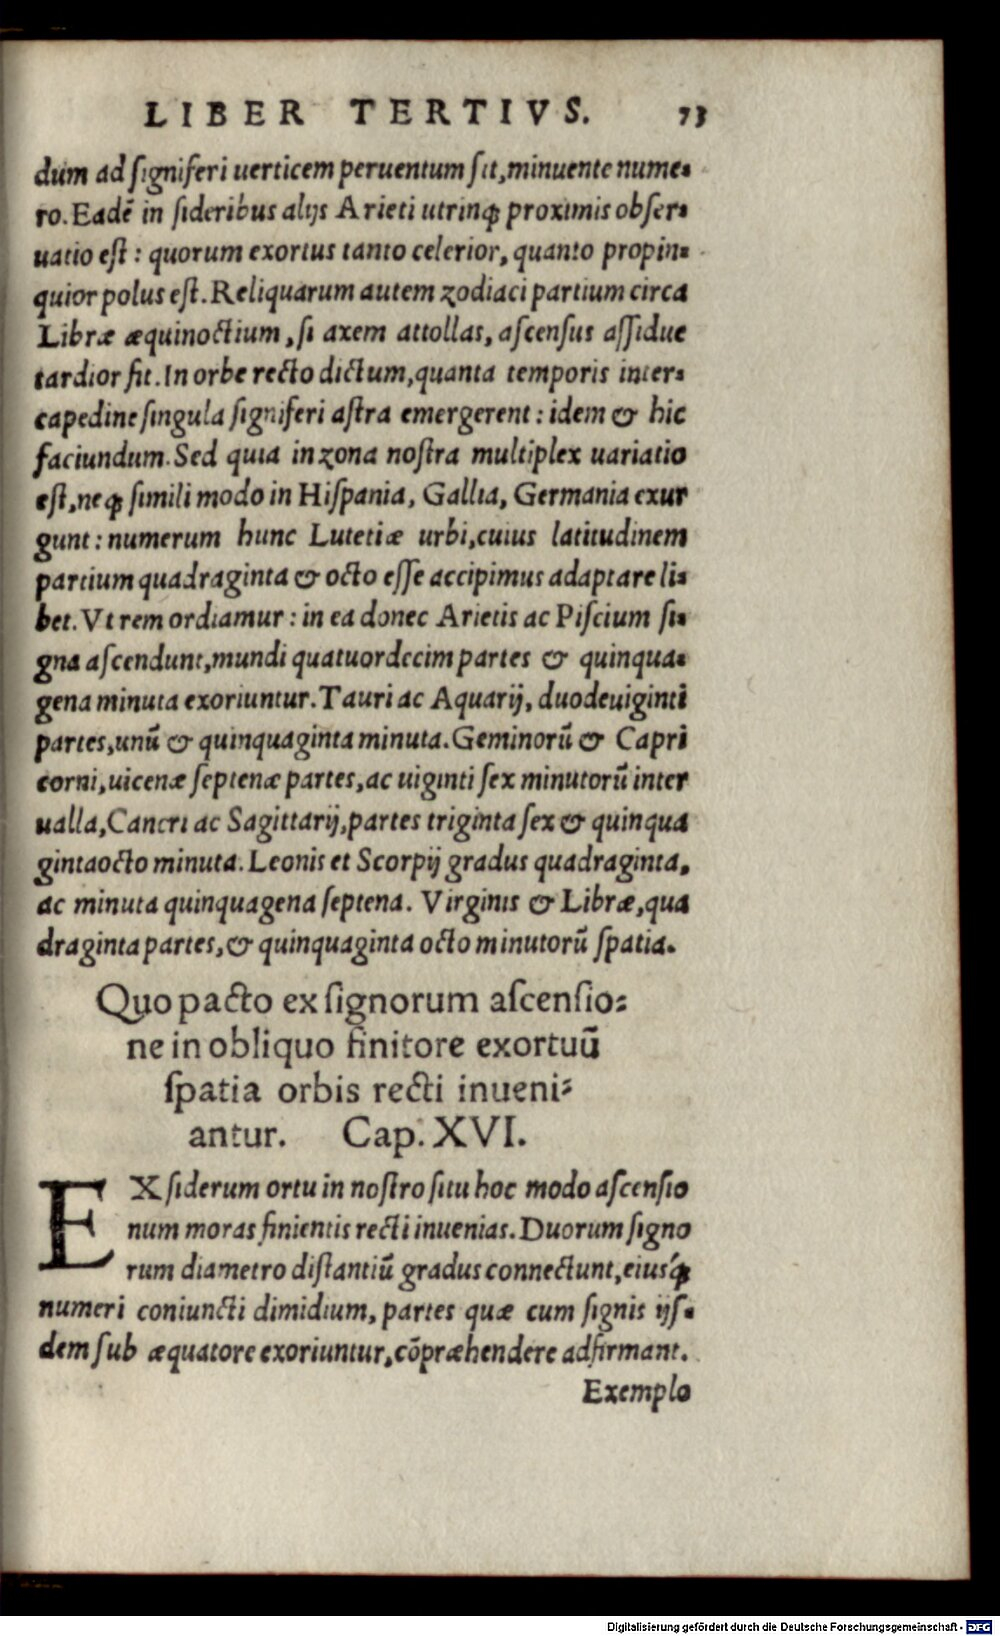 LIBER TERTIVS. 73
dum ad ſigniferi uerticem peruentum ſit, minuente nume-
ro. Eadē in ſideribus alijs Arieti utrinq; proximis obſer-
uatio eſt: quorum exortus tanto celerior, quanto propin-
quior polus eſt. Reliquarum autem zodiaci partium circa
Libræ æquinoctium, ſi axem attollas, aſcenſus aſſidue
tardior fit. In orbe recto dictum, quanta temporis inter-
capedine ſingula ſigniferi aſtra emergerent: idem & hic
faciundum. Sed quia in zona noſtra multiplex uariatio
eſt, neq; ſimili modo in Hiſpania, Gallia, Germania exur
gunt: numerum hunc Lutetiæ urbi, cuius latitudinem
partium quadraginta & octo eſſe accipimus adaptare li-
bet. Vt rem ordiamur: in ea donec Arietis ac Piſcium ſi-
gna aſcendunt, mundi quatuordecim partes & quinqua-
gena minuta exoriuntur. Tauri ac Aquarij, duodeuiginti
partes, unū & quinquaginta minuta. Geminorū & Capri
corni, uicenæ ſeptenæ partes, ac uiginti ſex minutorū inter
ualla, Cancri ac Sagittarij, partes triginta ſex & quinqua
gintaocto minuta. Leonis et Scorpij gradus quadraginta,
ac minuta quinquagena ſeptena. Virginis & Libræ, qua
draginta partes, & quinquaginta octo minutorū ſpatia.
Quo pacto ex ſignorum aſcenſio-
ne in obliquo finitore exortuū
ſpatia orbis recti inueni-
antur. Cap. XVI.
EX ſiderum ortu in noſtro ſitu hoc modo aſcenſio
num moras finientis recti inuenias. Duorum ſigno
rum diametro diſtantiū gradus connectunt, eiusq́;
numeri coniuncti dimidium, partes quæ cum ſignis ijſ-
dem ſub æquatore exoriuntur, cōpræhendere adfirmant.
Exemplo
Digitalisierung gefördert durch die Deutsche Forschungsgemeinschaft - DFG